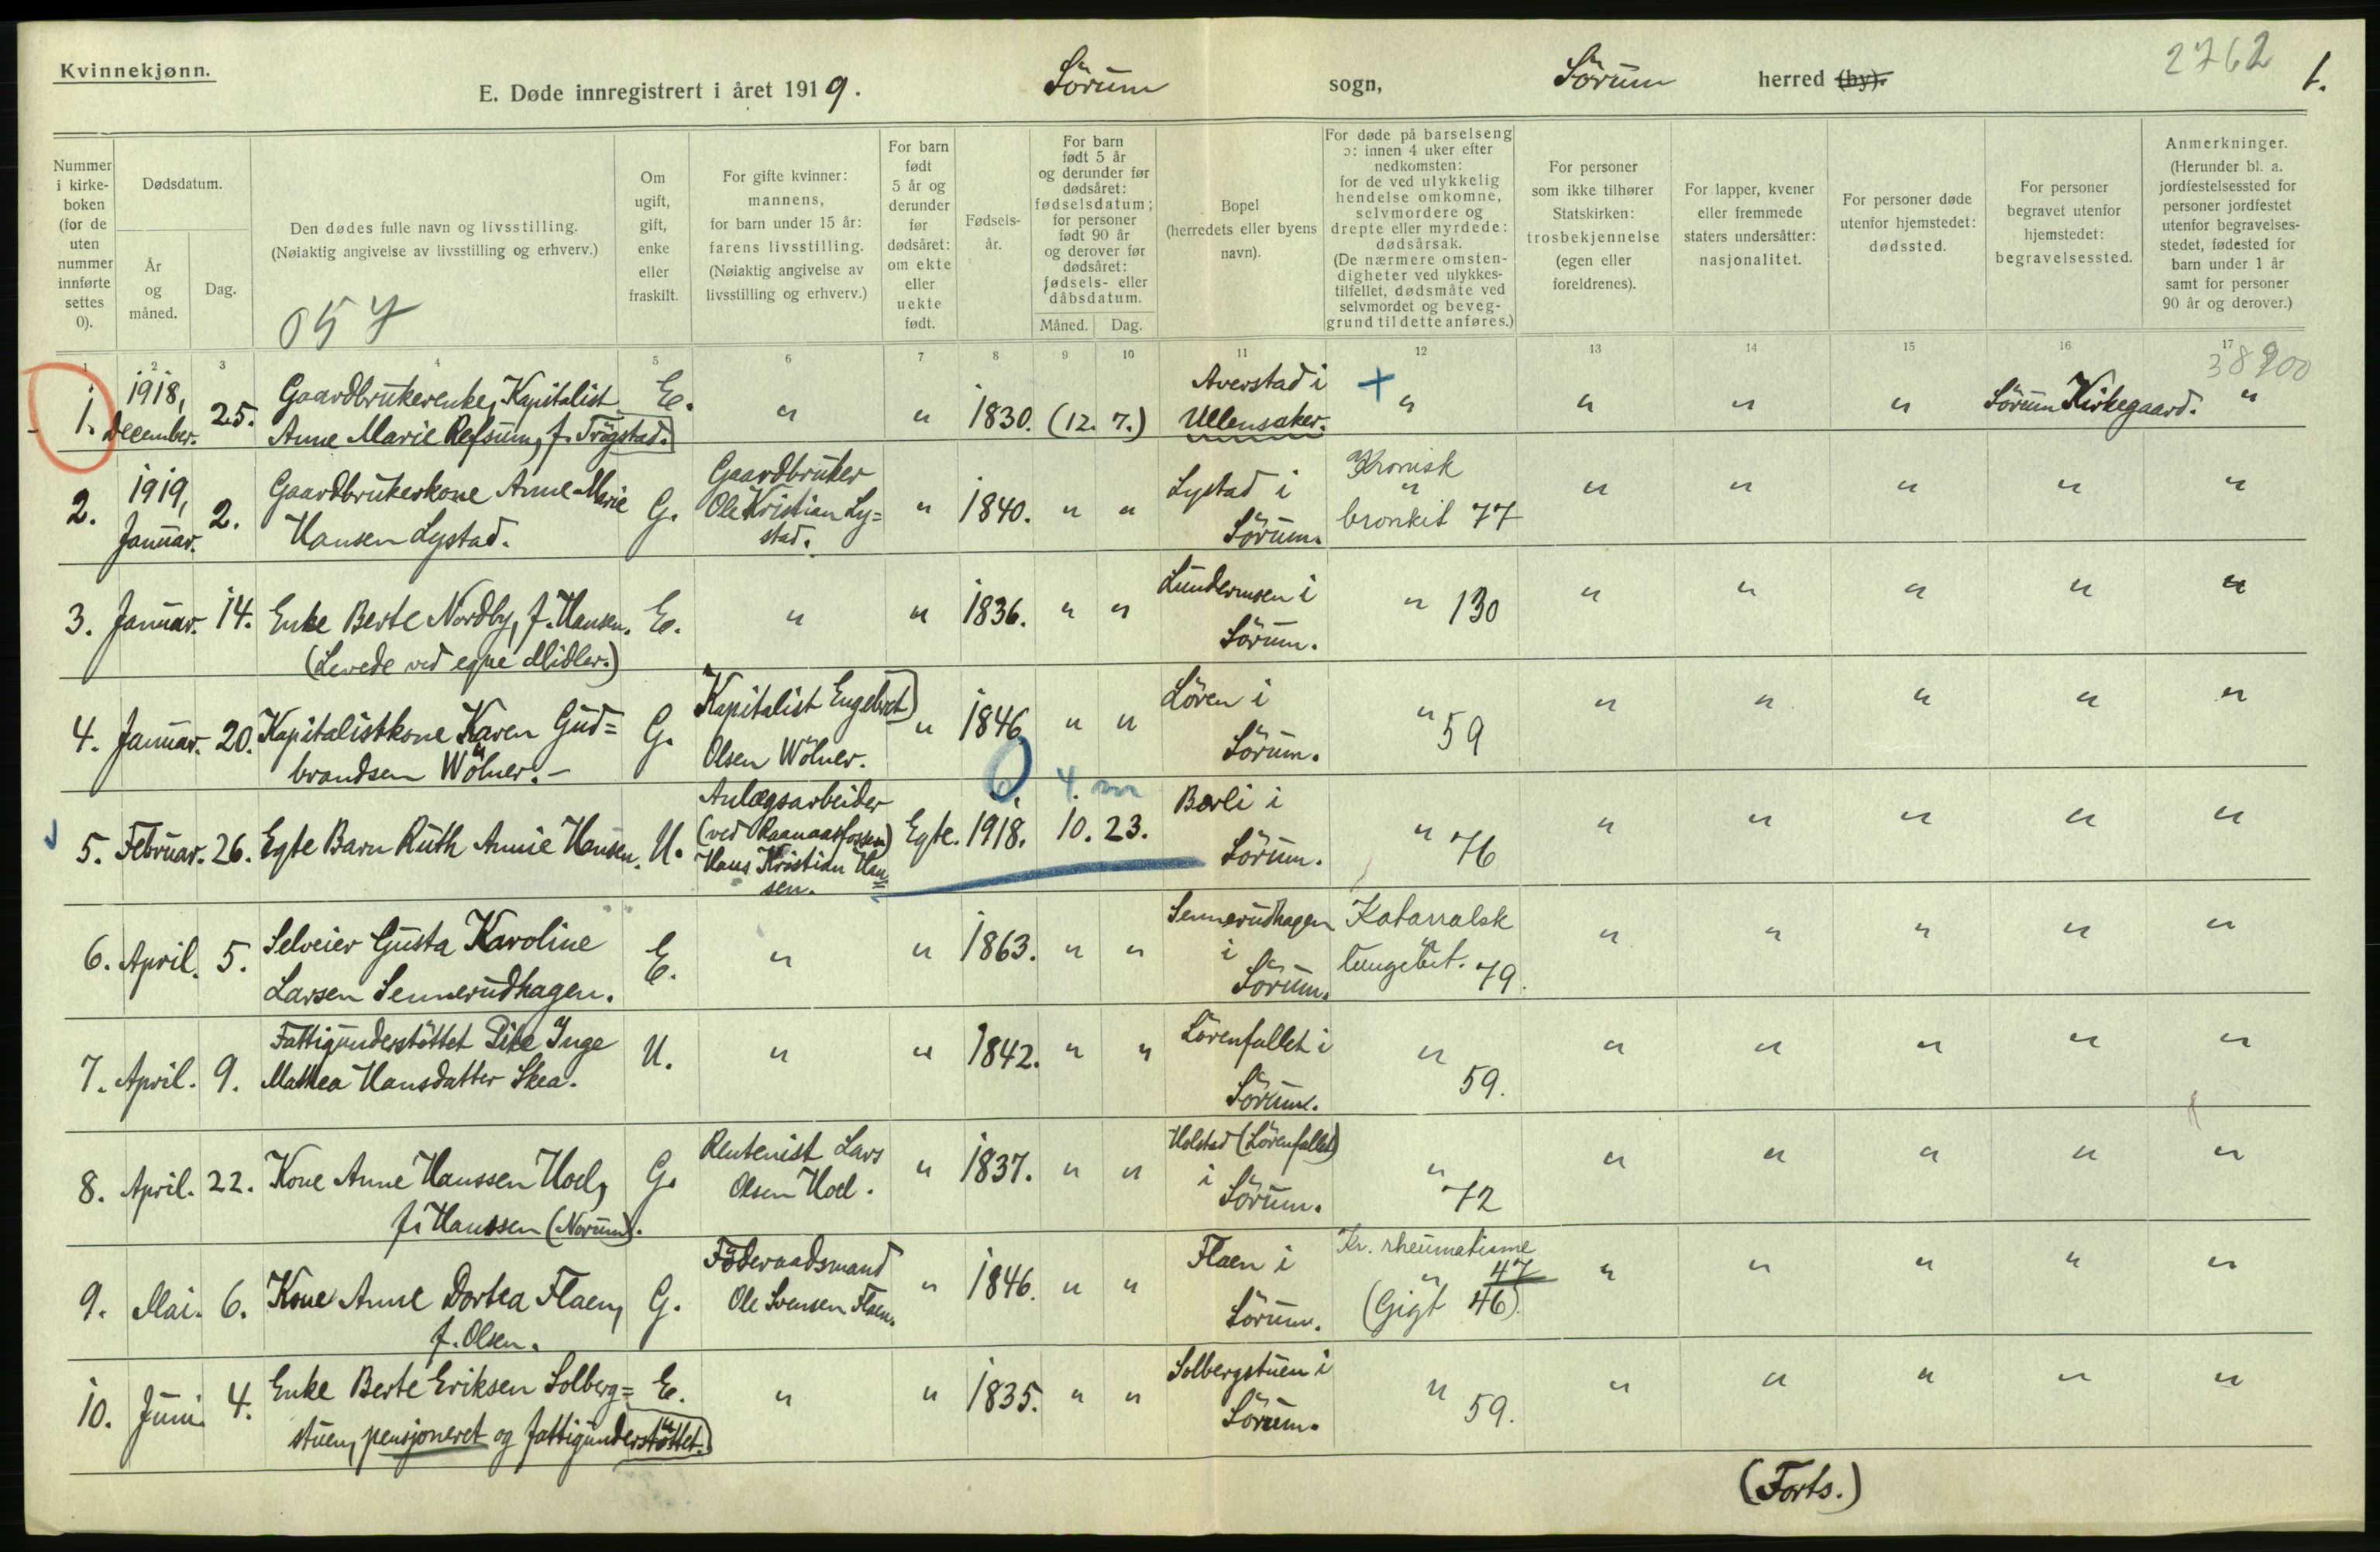 Kvinnekjønn.
E. Døde innregistrert i året 1919. Sörum sogn, Sörum herred (by).
2762 1.
Nummer i kirke-boken (for de uten nummer innførte settes 0).
Dødsdatum.
År og måned.
Dag.
Den dødes fulle navn og livsstilling.
(Nøiaktig angivelse av livsstilling og erhverv.)
057
Om ugift, gift, enke eller fraskilt.
For gifte kvinner: mannens, for barn under 15 år: farens livsstilling. (Nøiaktig angivelse av livsstilling og erhverv.)
For barn født 5 år og derunder før dødsåret: om ekte eller uekte født.
Fødsels-år.
For barn født 5 år og derunder før dødsåret: fødselsdatum; for personer født 90 år og derover før dødsåret: fødsels- eller dåbsdatum.
Måned. Dag.
Bopel (herredets eller byens navn).
For døde på barselseng ɔ: innen 4 uker efter nedkomsten: for de ved ulykkelig hendelse omkomne, selvmordere og drepte eller myrdede: dødsårsak. (De nærmere omsten-digheter ved ulykkes-tilfellet, dødsmåte ved selvmordet og beveg-grund til dette anføres.)
For personer som ikke tilhører Statskirken: trosbekjennelse (egen eller foreldrenes).
For lapper, kvener eller fremmede staters undersåtter: nasjonalitet.
For personer døde utenfor hjemstedet: dødssted.
For personer begravet utenfor hjemstedet: begravelsessted.
Anmerkninger. (Herunder bl. a. jordfestelsessted for personer jordfestet utenfor begravelses-stedet, fødested for barn under 1 år samt for personer 90 år og derover.)
1 2 3 4 5 6 7 8 9 10 11 12 13 14 15 16 17
38900
1. 1918, December. 25. Gaardbrukerenke, Kapitalist Anne Marie Refsum, f. Trögstad. E. " " 1830. (12. 7.) Averstad i Ullensaker. + " " " " Sörum Kirkegaard. "
2. 1919, Januar. 2. Gaardbrukerkone Anne Marie Hansen Lystad. G. Gaardbruker Ole Kristian Ly=stad. " 1840. " " Lystad i Sörum. Kronisk " bronkit 77 " " " " "
3. Januar. 14. Enke Berte Nordby, f. Hansen. (Levede ved egne Midler.) E. " " 1836. " " Lundermoen i Sörum. " 130 " " " " "
4. Januar. 20. Kapitalistkone Karen Gud=brandsen Wölner. - G. Kapitalist Engebret Olsen Wölner. " 1846 " " Lören i Sörum. " 59 " " " " "
5. Februar. 26. Egte Barn Ruth Annie Hansen. U. Anlægsarbeider (ved Raanaasfossen) Hans Kristian Han=sen. Egte. 1918. 10. 23. 0 4. m Borli i Sörum. " 76 " " " " "
6. April. 5. Selveier Gusta Karoline Larsen Sennerudhagen. E. " " 1863. " " Sennerudhagen i Sörum. Katarralsk " lungebet. 79. " " " " "
7. April. 9. Fattigunderstöttet Pike Inge Mathea Hansdatter Skea. U. " " 1842. " " Lörenfallet i Sörum. " 59. " " " " "
8. April. 22. Kone Anne Hanssen Hoel, f. Hanssen (Norum). G. Rentenist Lars Olsen Hoel. " 1837. " " Holstad (Lörenfallet) i Sörum. " 72 " " " " "
9. Mai. 6. Kone Anne Dortea Flaen, f. Olsen. G. Föderaadsmand Ole Svensen Flaen. " 1846. " " Flaen i Sörum. Kr. rheumatisme " 47 (Gigt 46). " " " " "
10. Juni 4. Enke Berte Eriksen Solberg=stuen, pensjoneret og fattigunderstöttet. E. " " 1835. " " Solbergstuen i Sörum. " 59. " " " " "
(Forts.)